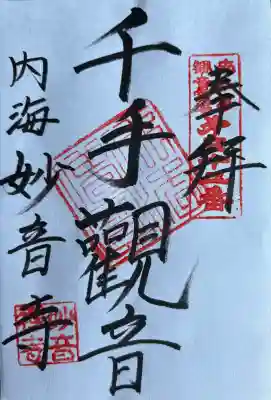 奉拝
千手觀音
内海妙音寺